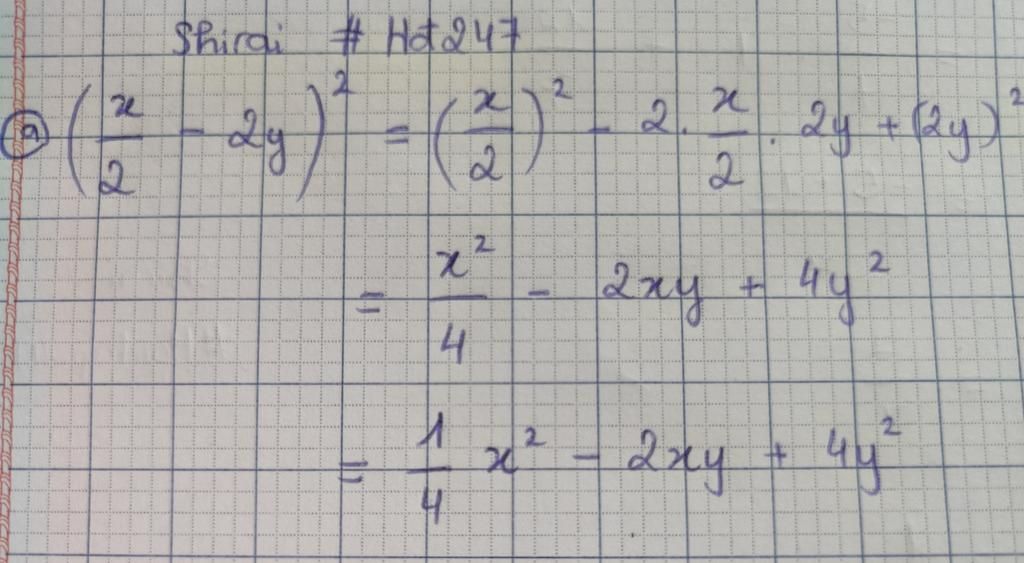 Shirai # Hd247
a) (x/2 - 2y)² = (x/2)² - 2 · x/2 · 2y + (2y)²
= x²/4 - 2xy + 4y²
= 1/4 x² - 2xy + 4y²